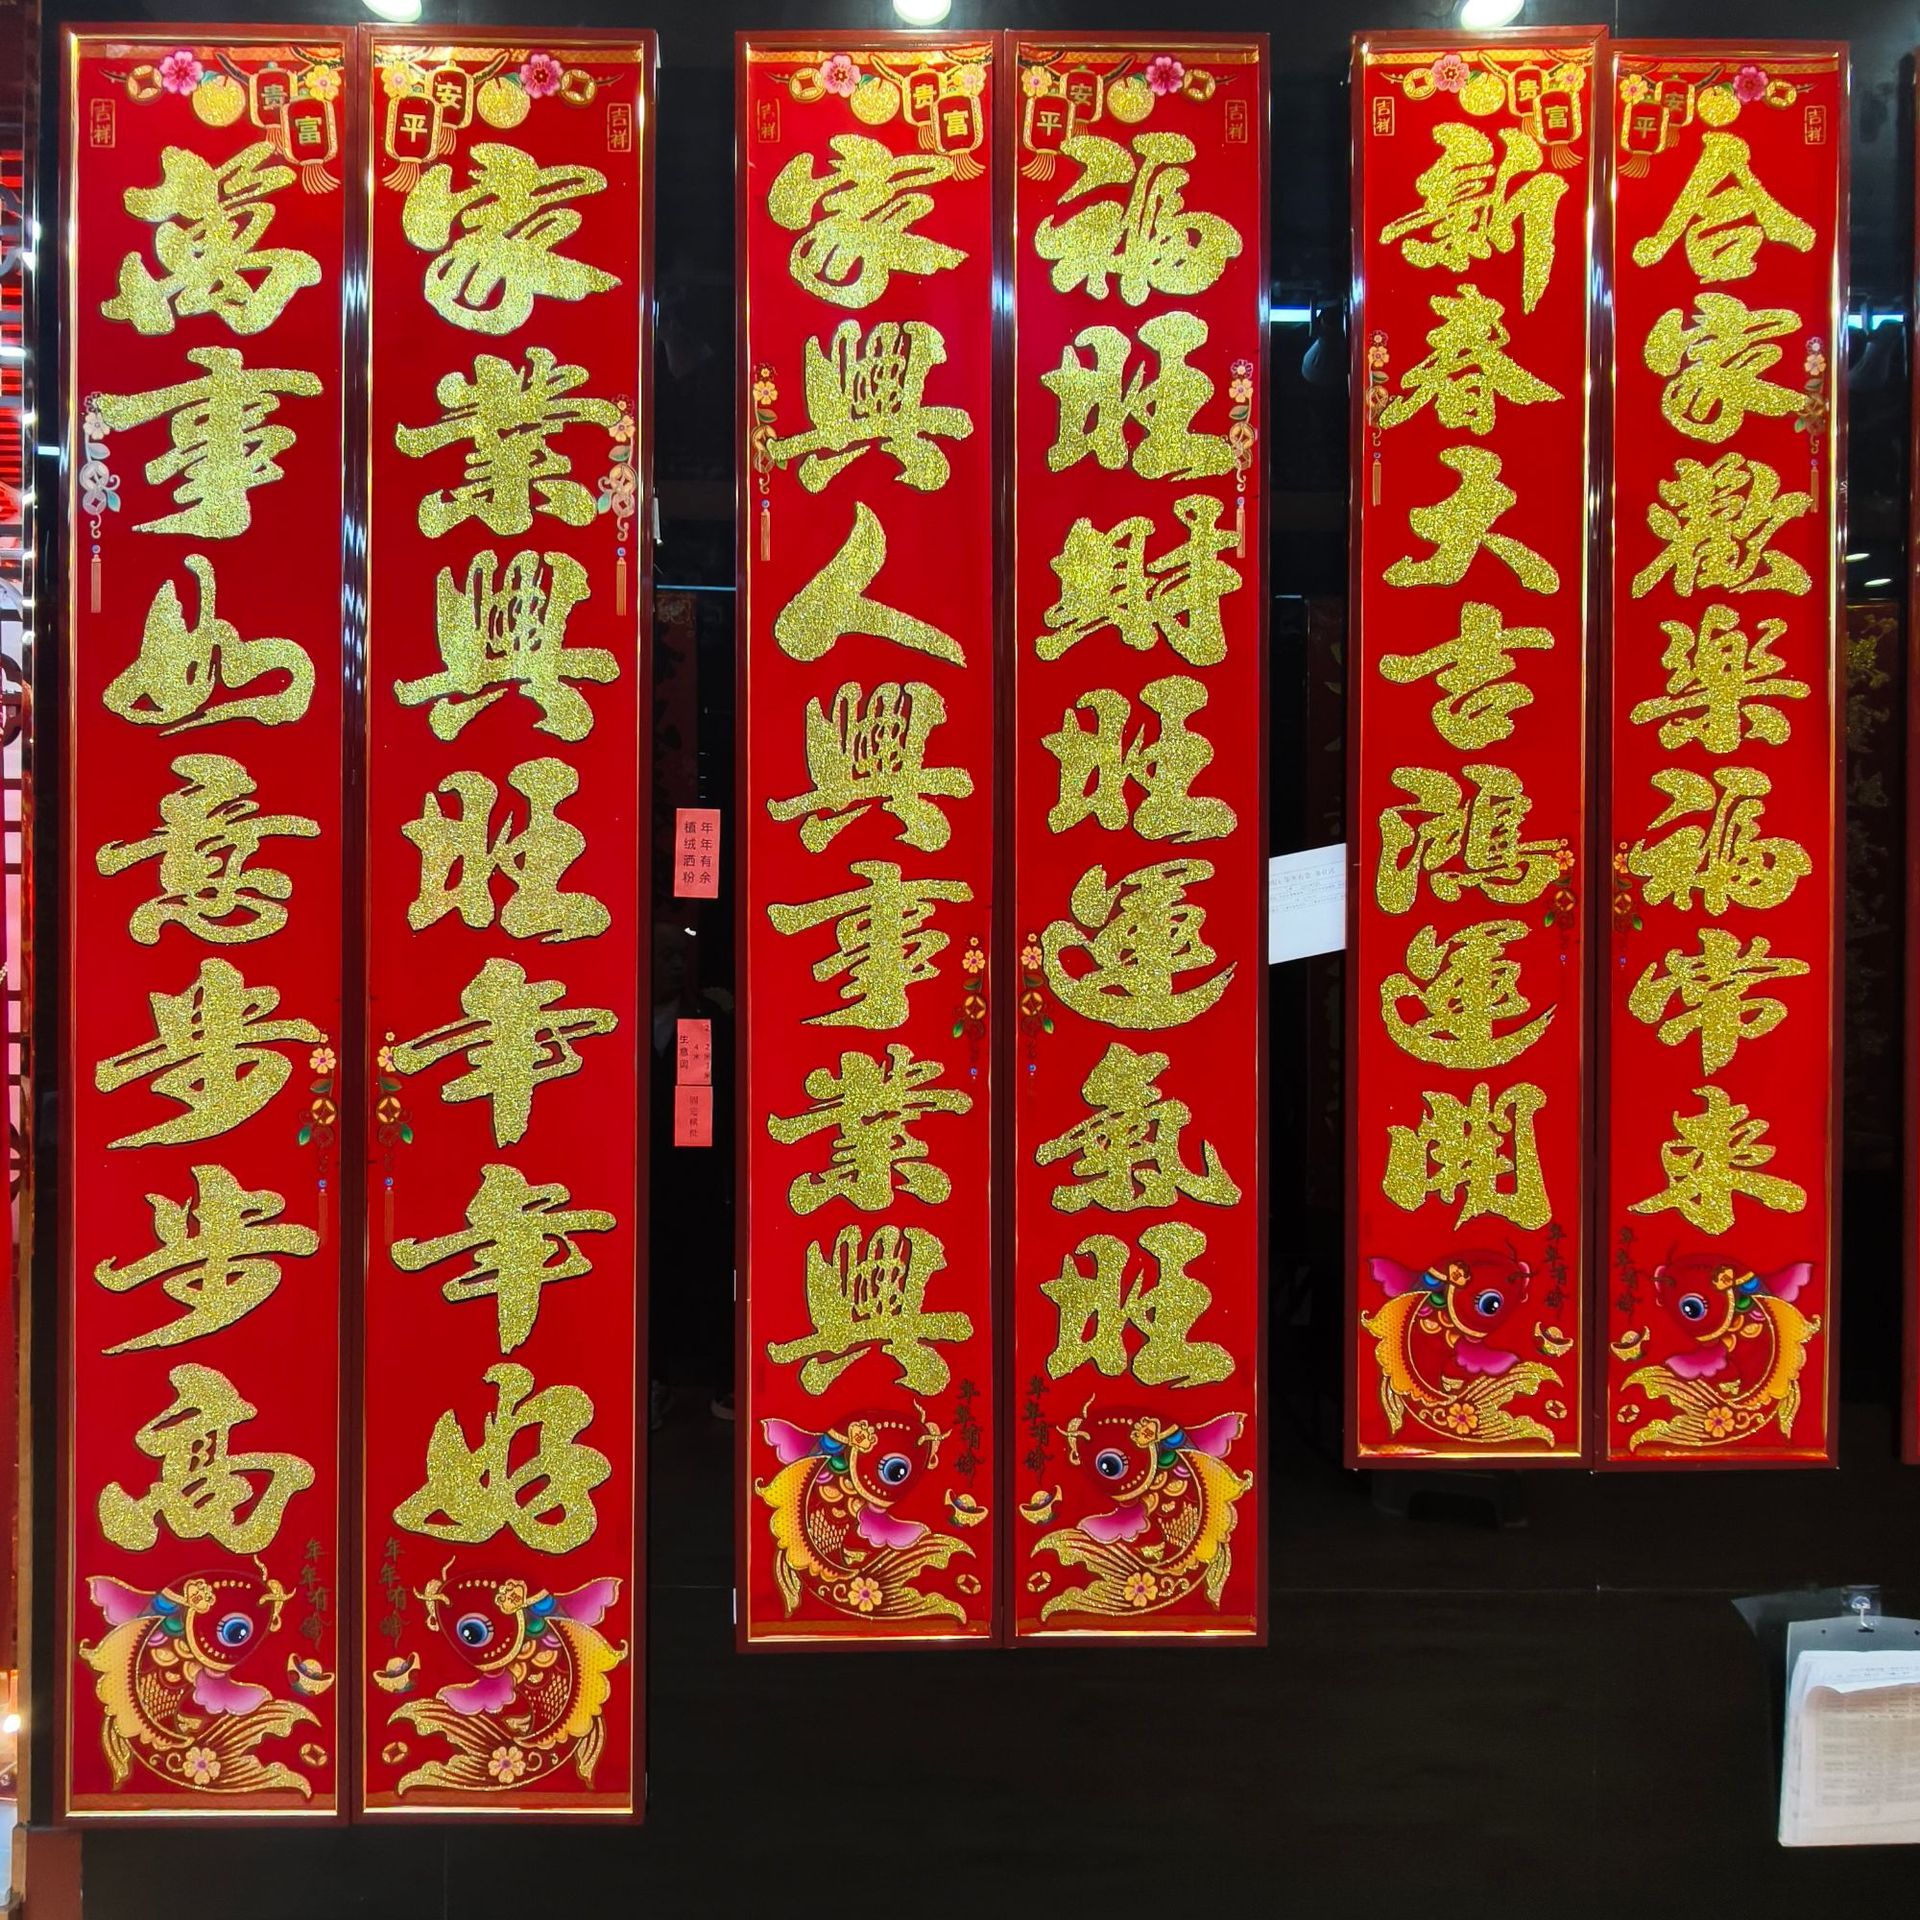 萬事如意步步高
家業興旺年年好
家興人興事業興
福旺財旺運氣旺
新春大吉鴻運開
合家歡樂福常来
吉祥
富贵
平安
吉祥
吉祥
富贵
平安
吉祥
吉祥
富贵
平安
吉祥
年年有余
植绒洒粉
生意词
年年有馀
年年有馀
年年有馀
年年有馀
年年有馀
年年有馀